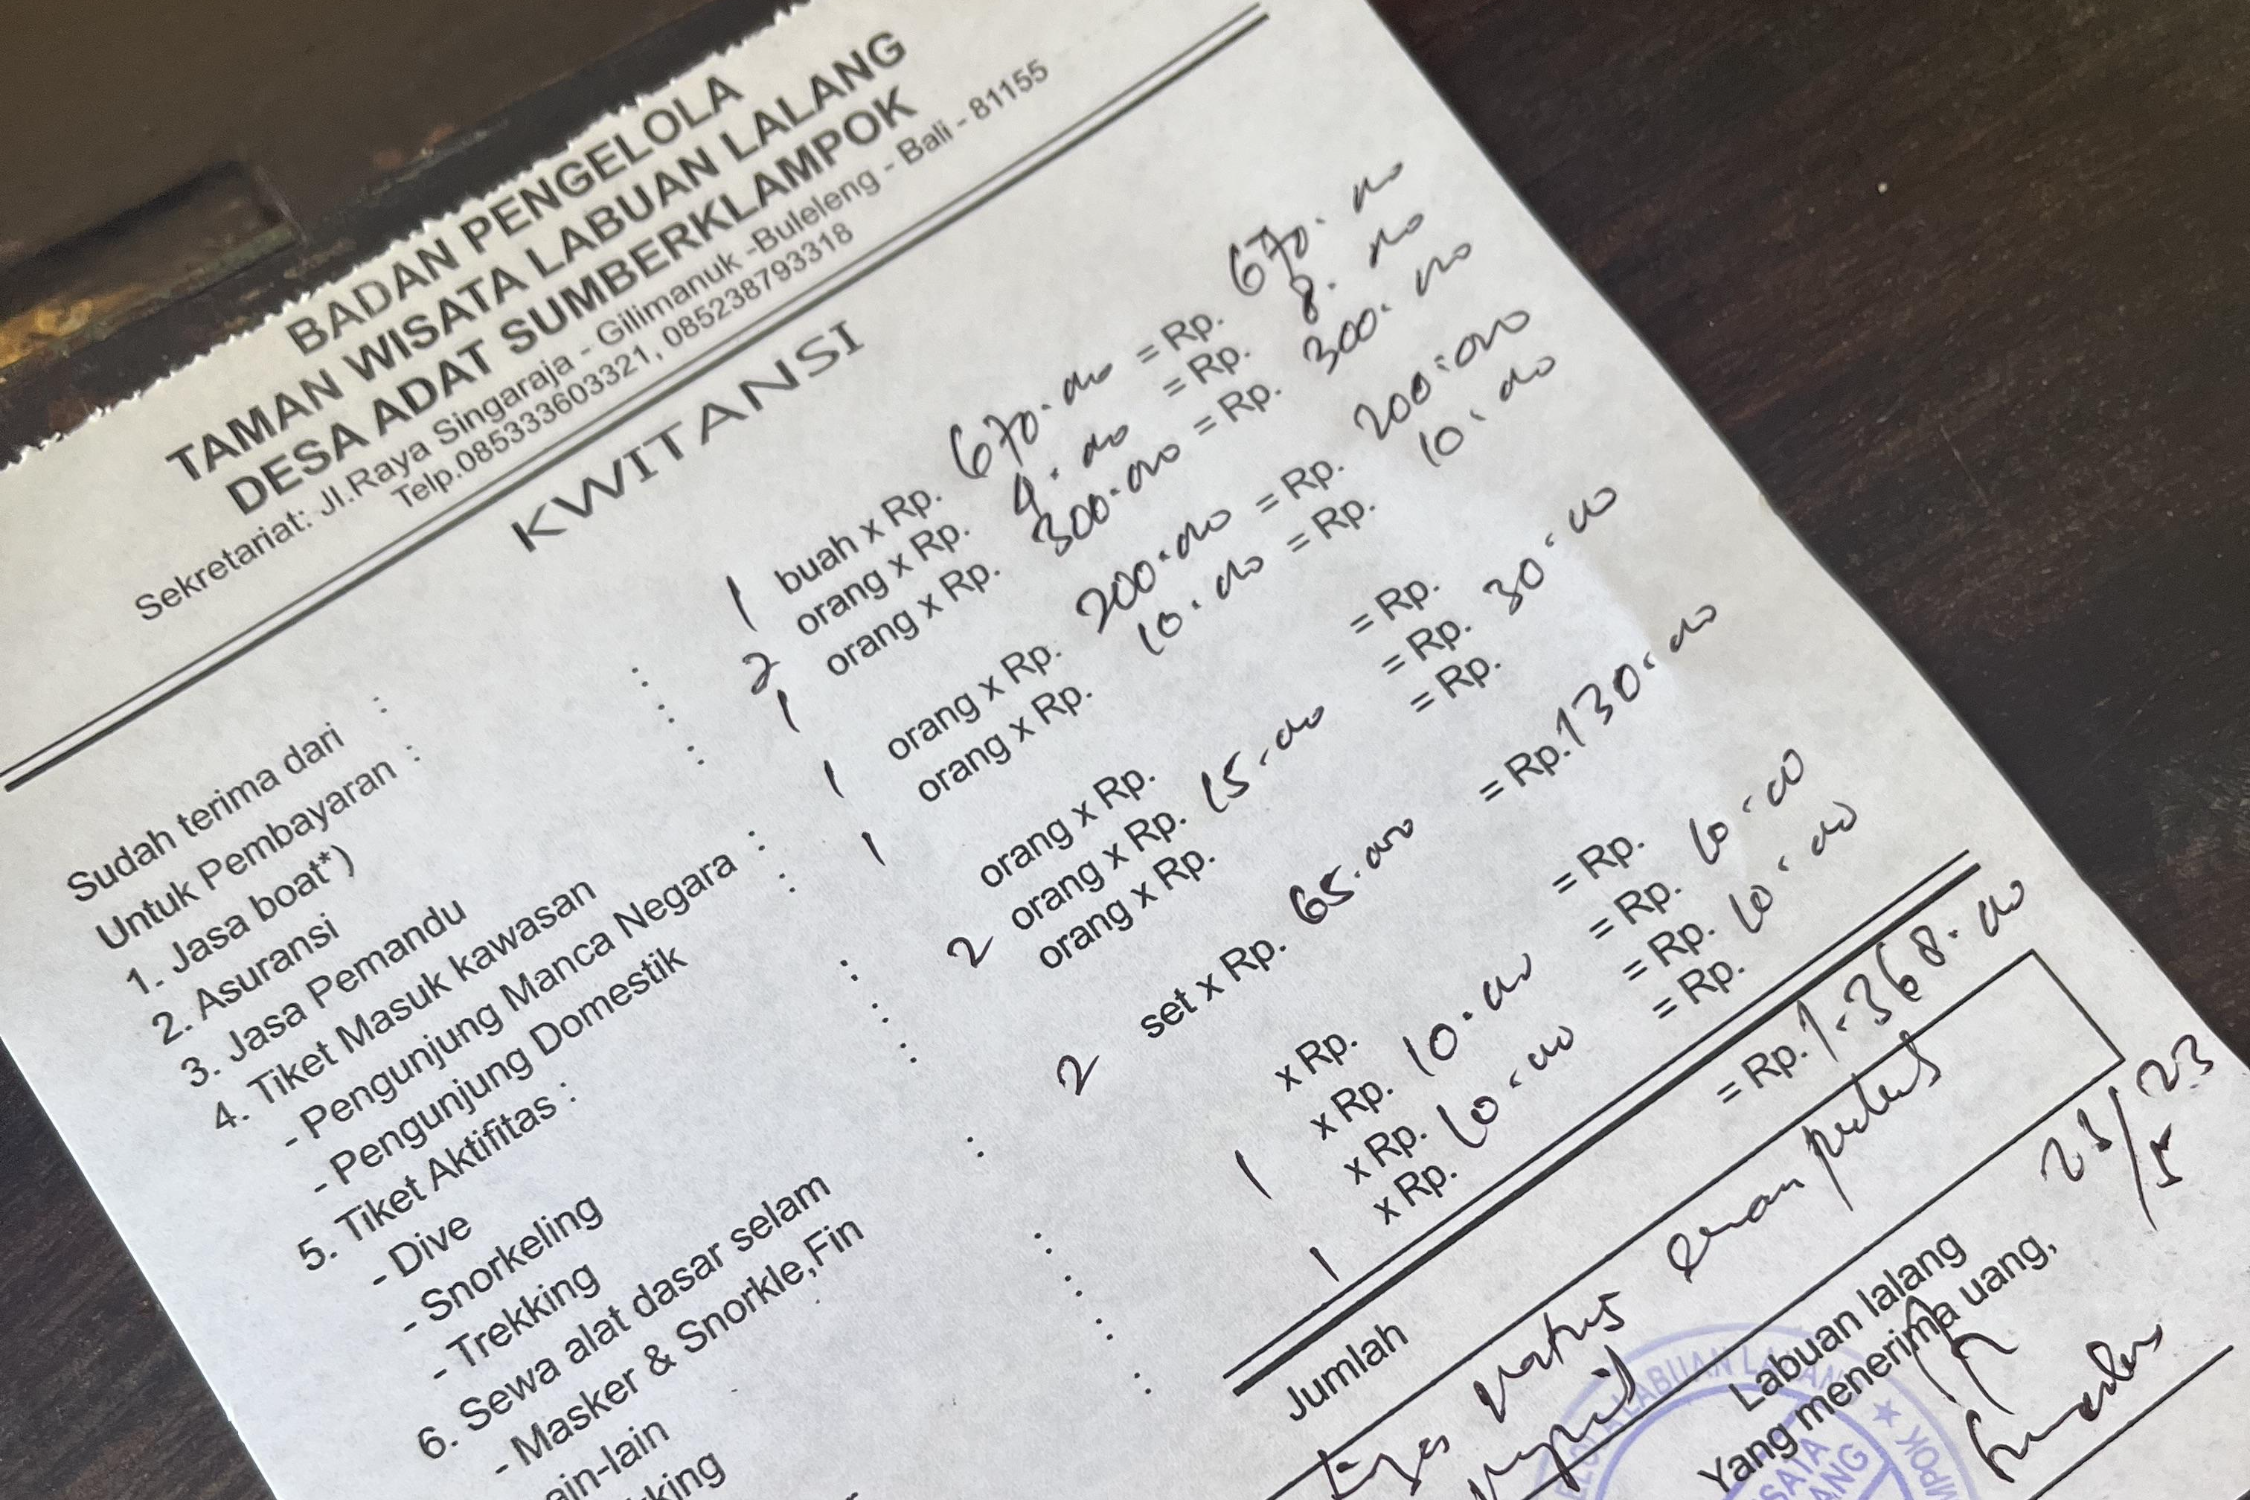 BADAN PENGELOLA
TAMAN WISATA LABUAN LALANG
DESA ADAT SUMBERKLAMPOK
Sekretariat: Jl.Raya Singaraja - Gilimanuk -Buleleng - Bali - 81155
Telp.085333603321, 085238793318
KWITANSI
Sudah terima dari :
Untuk Pembayaran :
1. Jasa boat*) : 1 buah x Rp. 670.000 = Rp. 670.000
2. Asuransi : 2 orang x Rp. 4.000 = Rp. 8.000
3. Jasa Pemandu : 1 orang x Rp. 300.000 = Rp. 300.000
4. Tiket Masuk kawasan
- Pengunjung Manca Negara : 1 orang x Rp. 200.000 = Rp. 200.000
- Pengunjung Domestik : 1 orang x Rp. 10.000 = Rp. 10.000
5. Tiket Aktifitas :
- Dive : orang x Rp. = Rp.
- Snorkeling : 2 orang x Rp. 15.000 = Rp. 30.000
- Trekking : orang x Rp. = Rp.
6. Sewa alat dasar selam
- Masker & Snorkle,Fin : 2 set x Rp. 65.000 = Rp. 130.000
: x Rp. = Rp.
: 1 x Rp. 10.000 = Rp. 10.000
: x Rp. 10.000 = Rp. 10.000
: 1 x Rp. = Rp.
Jumlah = Rp. 1.368.000
ratus enam puluh
Labuan lalang 23/5 23
Yang menerima uang,
LABUAN LALANG